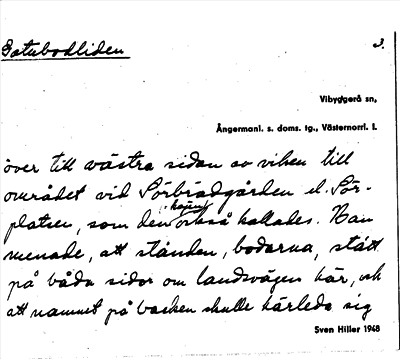 Gatubodliden
3.
Vibyggerå sn,
Ångermanl. s. doms. tg., Västernorrl. l.
över till västra sidan av viken till
området vid Sörbrådgården el. Sör-
platsen, som den också kallades. Han
menade, att stånden, bodarna, stått
på båda sidor om landsvägen här, och
att namnet på backen skulle härleda sig
Sven Hiller 1948